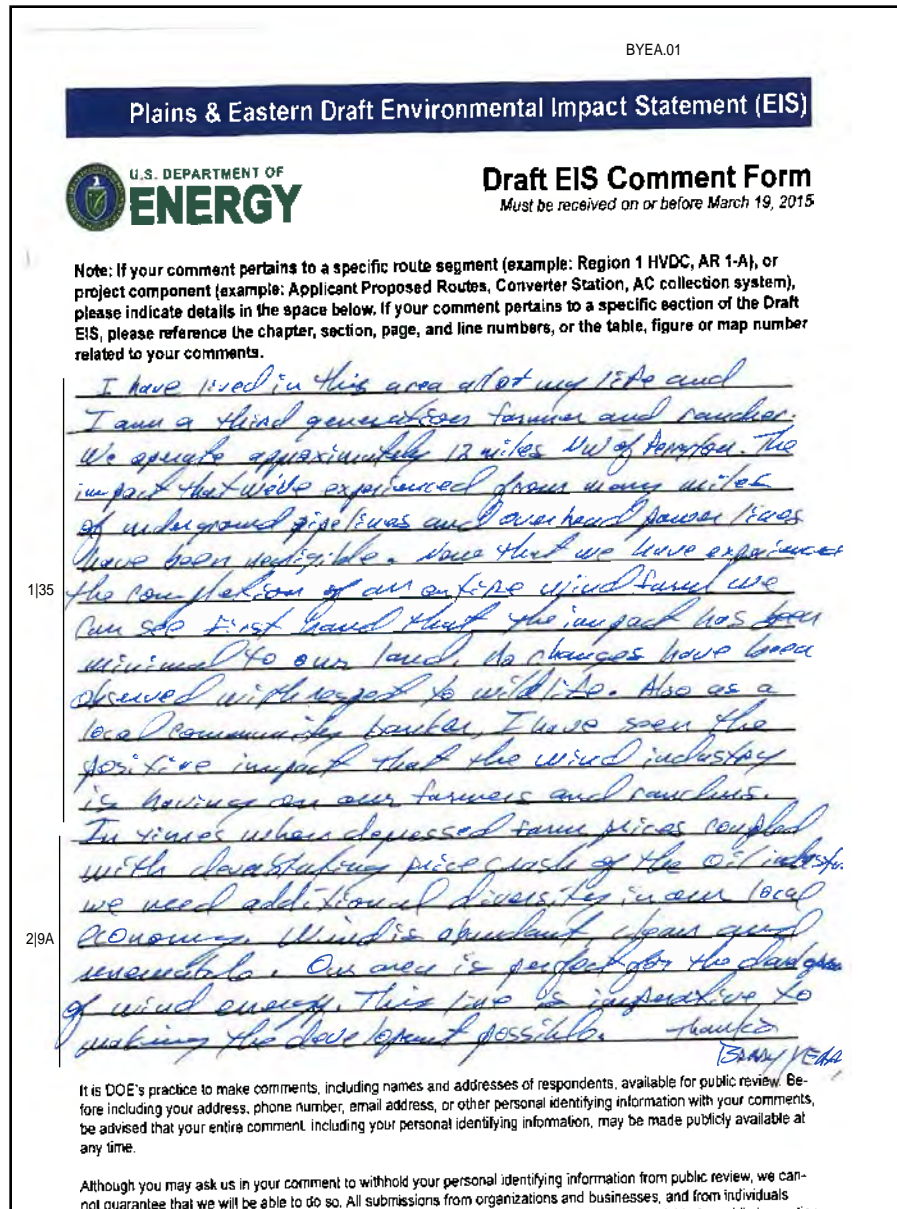 BYEA.01
Plains & Eastern Draft Environmental Impact Statement (EIS)
U.S. DEPARTMENT OF
ENERGY
Draft EIS Comment Form
Must be received on or before March 19, 2015
Note: If your comment pertains to a specific route segment (example: Region 1 HVDC, AR 1-A), or
project component (example: Applicant Proposed Routes, Converter Station, AC collection system),
please indicate details in the space below. If your comment pertains to a specific section of the Draft
EIS, please reference the chapter, section, page, and line numbers, or the table, figure or map number
related to your comments.
I have lived in this area alot my life and
I am a third generation farmer and rancher.
We operate approximately 12 miles NW of Perryton. The
impact that we've experienced from many miles
of underground pipelines and overhead power lines
have been negligible. Now that we have experienced
1|35
the completion of an entire wind farm we
can see first hand that the impact has been
minimal to our land. No changes have been
observed with respect to wildlife. Also as a
local community banker, I have seen the
positive impact that the wind industry
is having on our farmers and ranchers.
In times when depressed farm prices coupled
with devastating price crash of the oil industry
we need additional diversity in our local
2|9A
economy. Wind is abundant, clean and
renewable. Our area is perfect for the
of wind energy. This line is imperative to
making the development possible. Thanks
It is DOE's practice to make comments, including names and addresses of respondents, available for public review. Be-
fore including your address, phone number, email address, or other personal identifying information with your comments,
be advised that your entire comment, including your personal identifying information, may be made publicly available at
any time.
Although you may ask us in your comment to withhold your personal identifying information from public review, we can-
not guarantee that we will be able to do so. All submissions from organizations and businesses, and from individuals